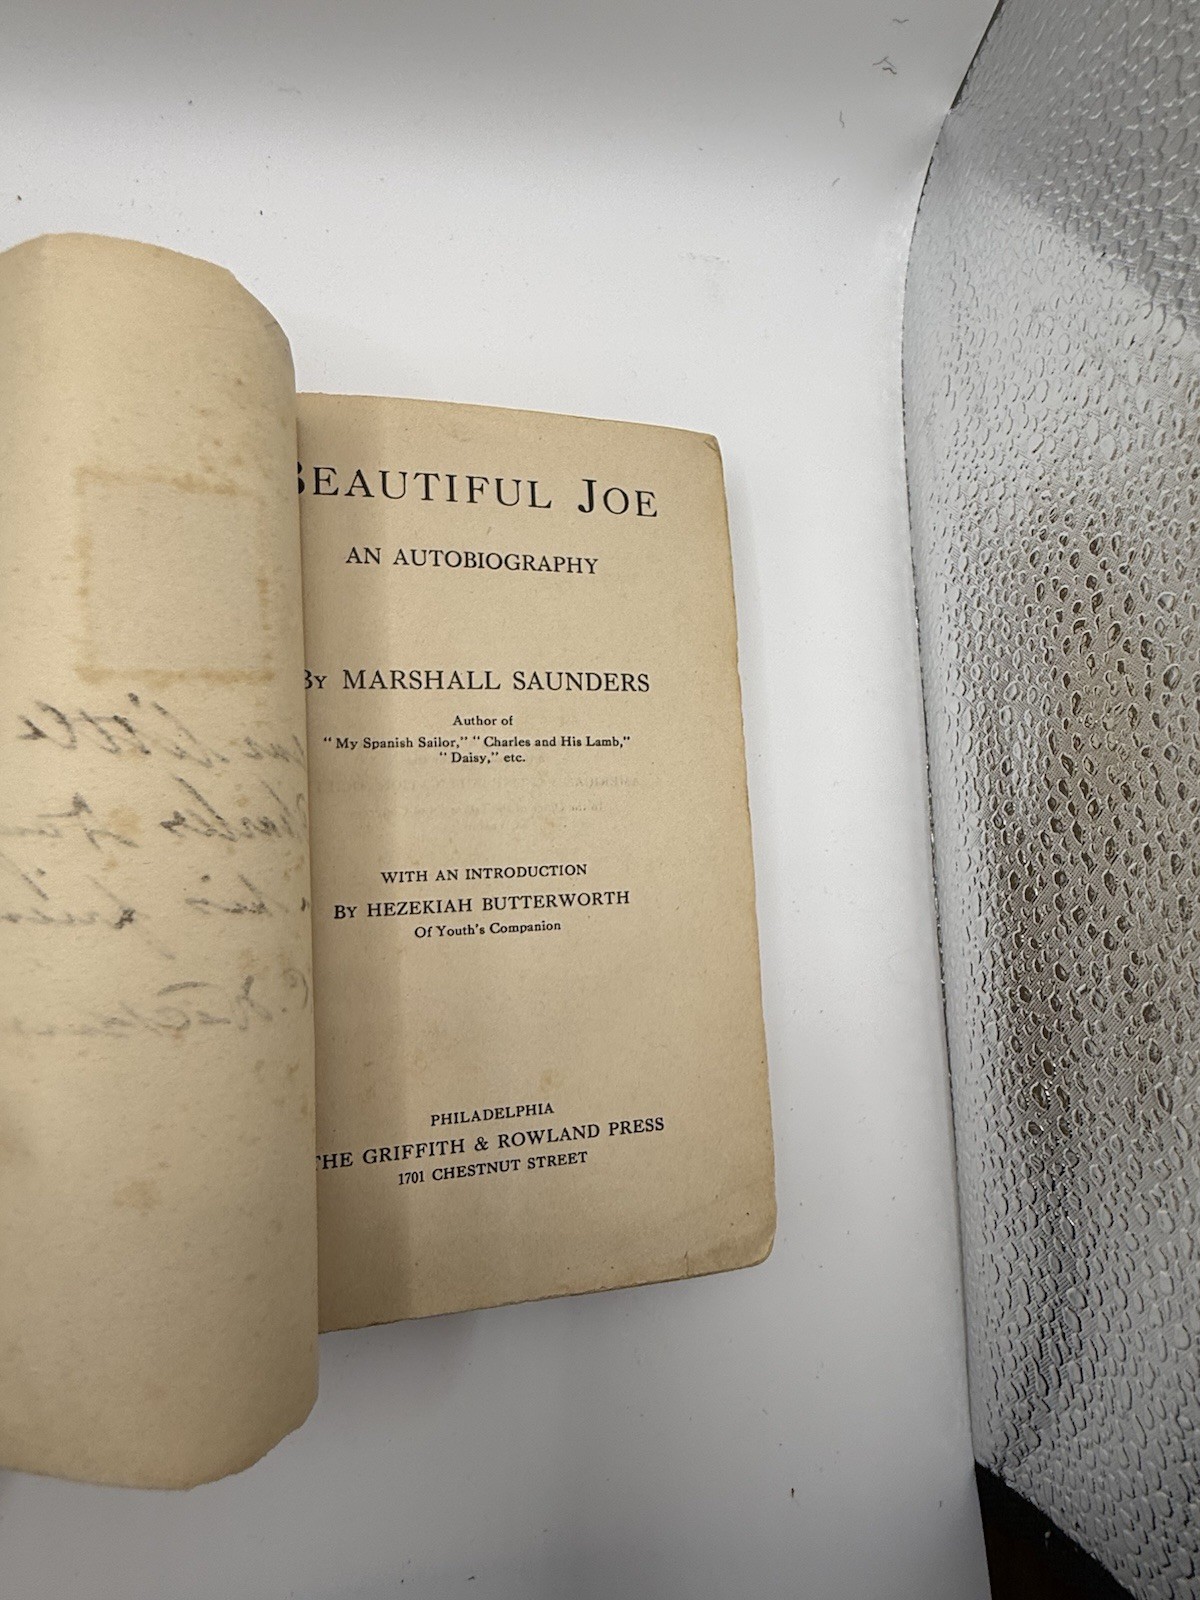 BEAUTIFUL JOE
AN AUTOBIOGRAPHY
By MARSHALL SAUNDERS
Author of
"My Spanish Sailor," "Charles and His Lamb,"
"Daisy," etc.
WITH AN INTRODUCTION
By HEZEKIAH BUTTERWORTH
Of Youth's Companion
PHILADELPHIA
THE GRIFFITH & ROWLAND PRESS
1701 CHESTNUT STREET